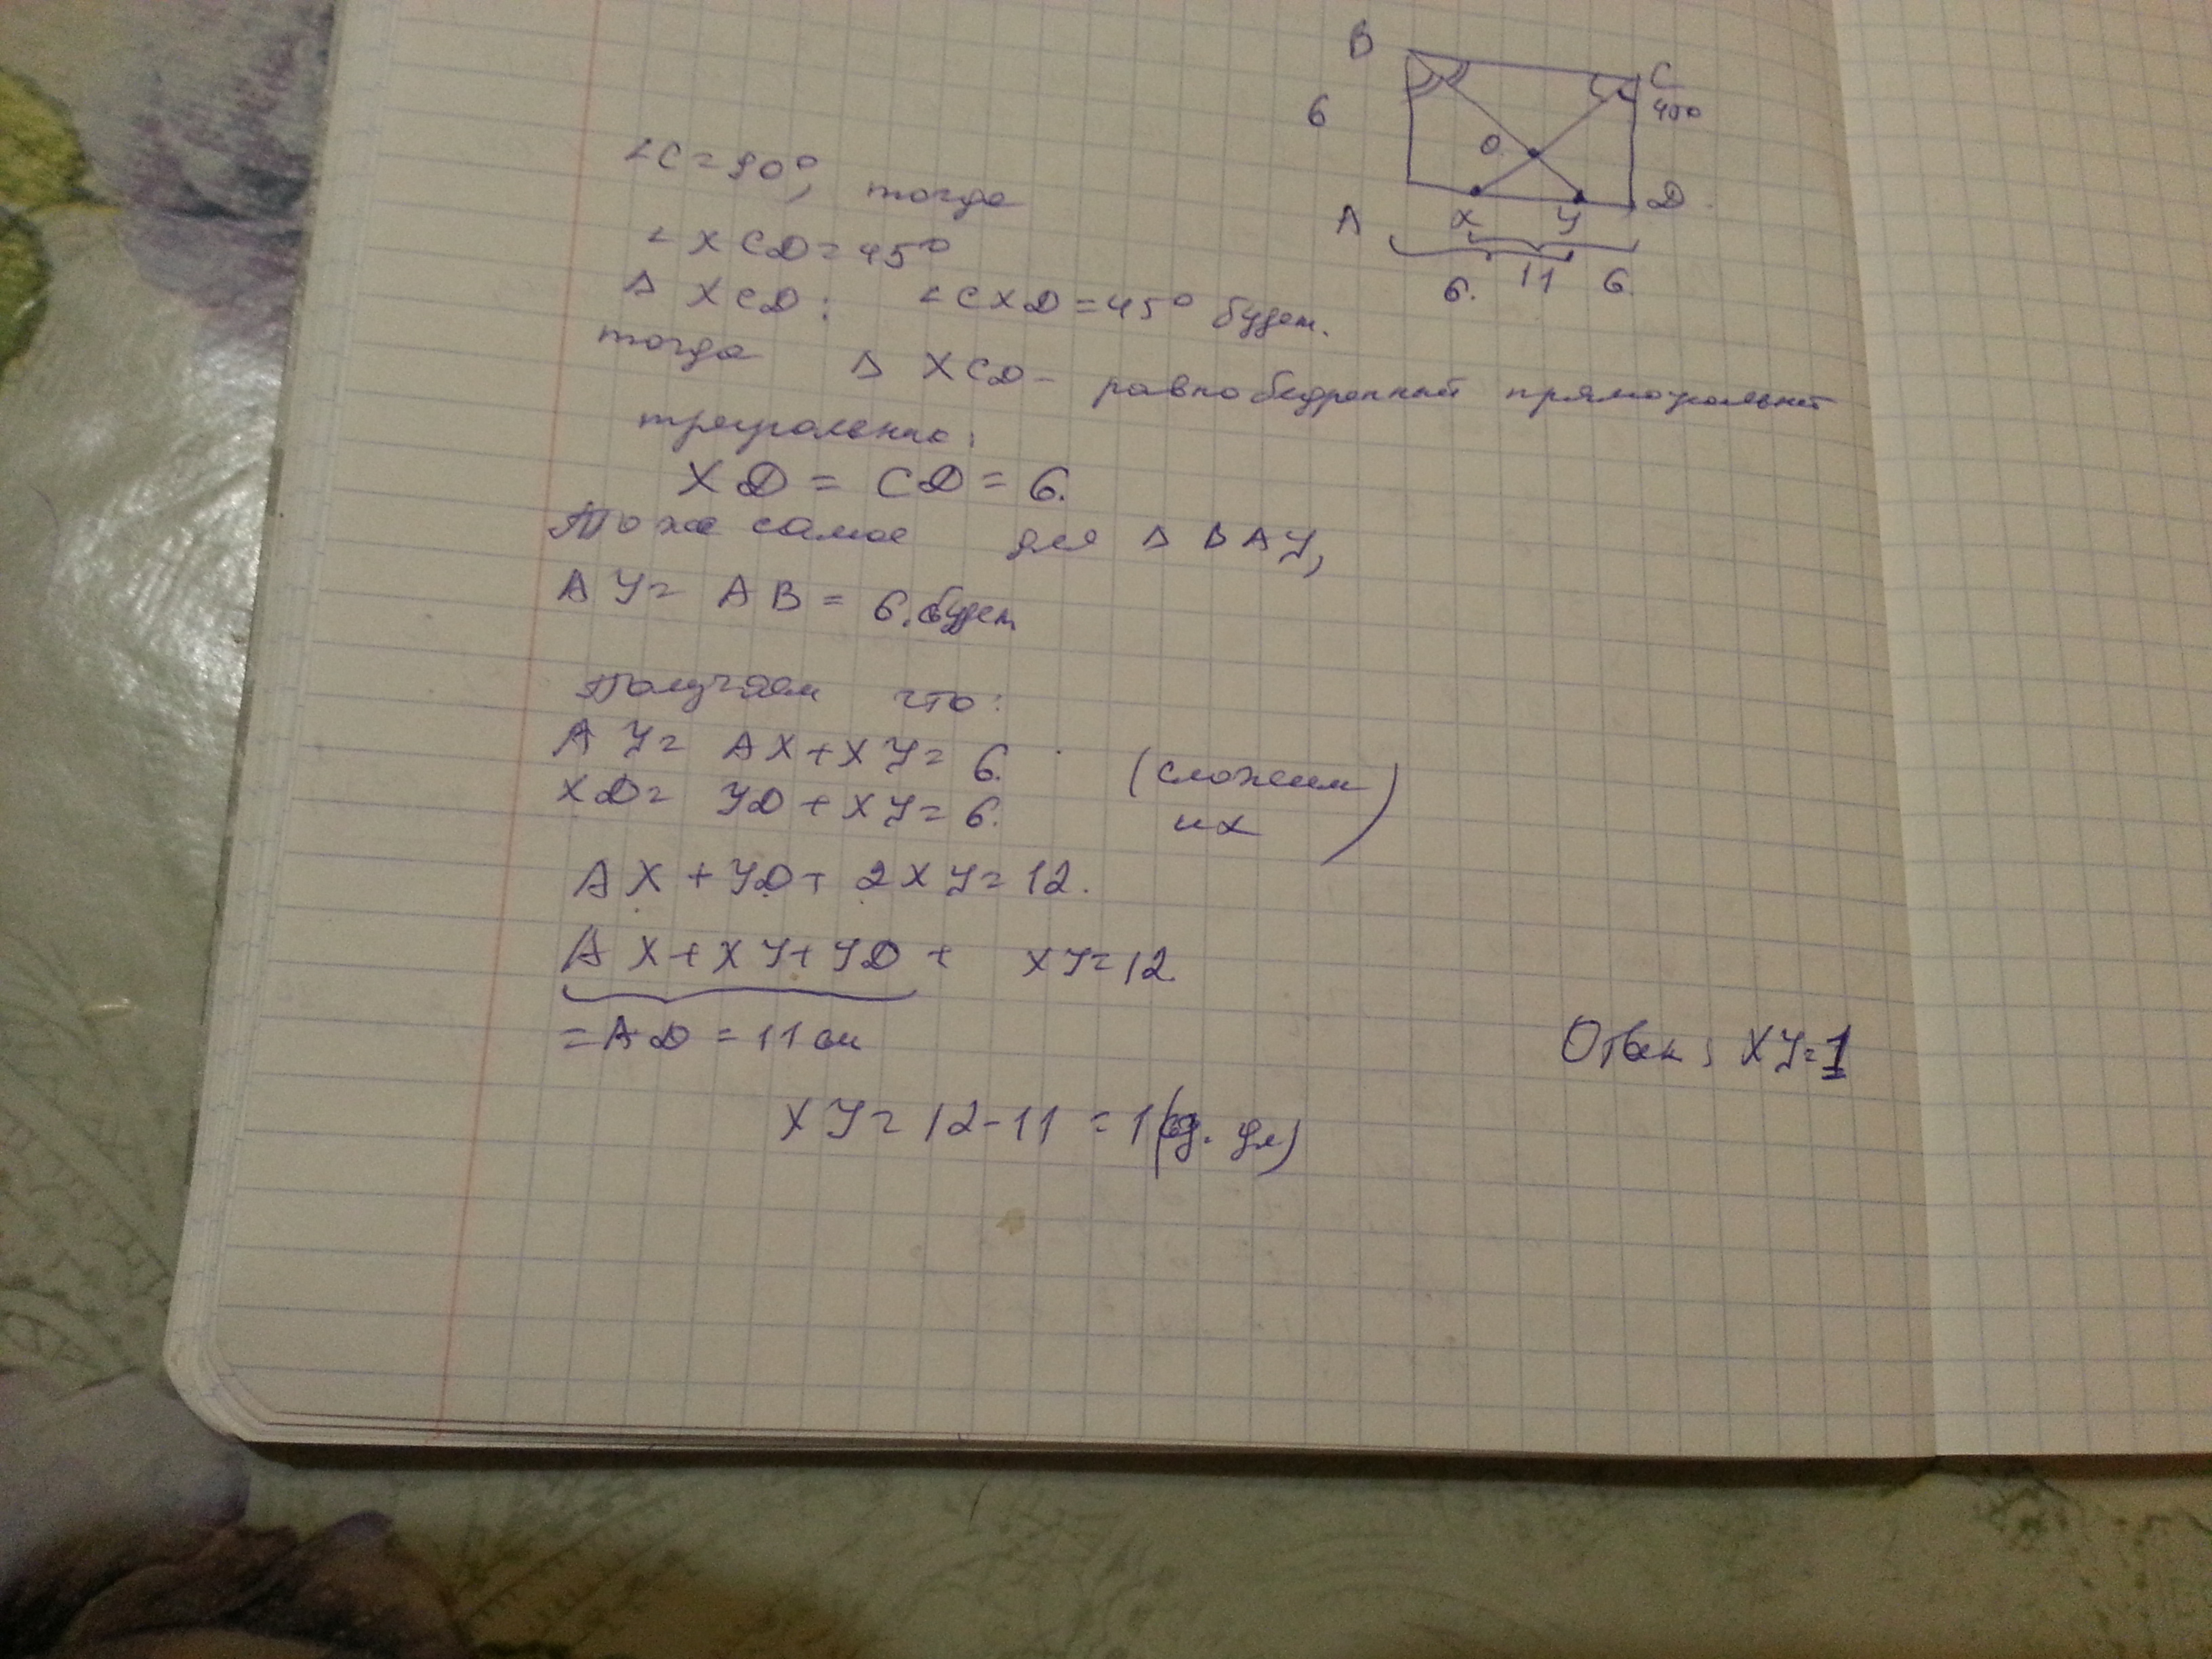 B
C
6
45°
O
A
X
У
D
6. 11 6.
∠C=90°, тогда
∠XCD=45°
Δ XCD: ∠CXD=45° будет.
тогда Δ XCD – равнобедренный прямоугольный
треугольник:
XD = CD = 6.
Тоже самое для Δ BAУ,
AУ= AB = 6. будет
Получаем что:
AУ= AX+XУ= 6.
XD= УD+XУ= 6.
(сложим
их)
AX+УD+2XУ=12.
AX+XУ+УD+ XУ=12
=AD=11 см
Ответ: XУ=1
XУ=12-11=1(ед. дл)